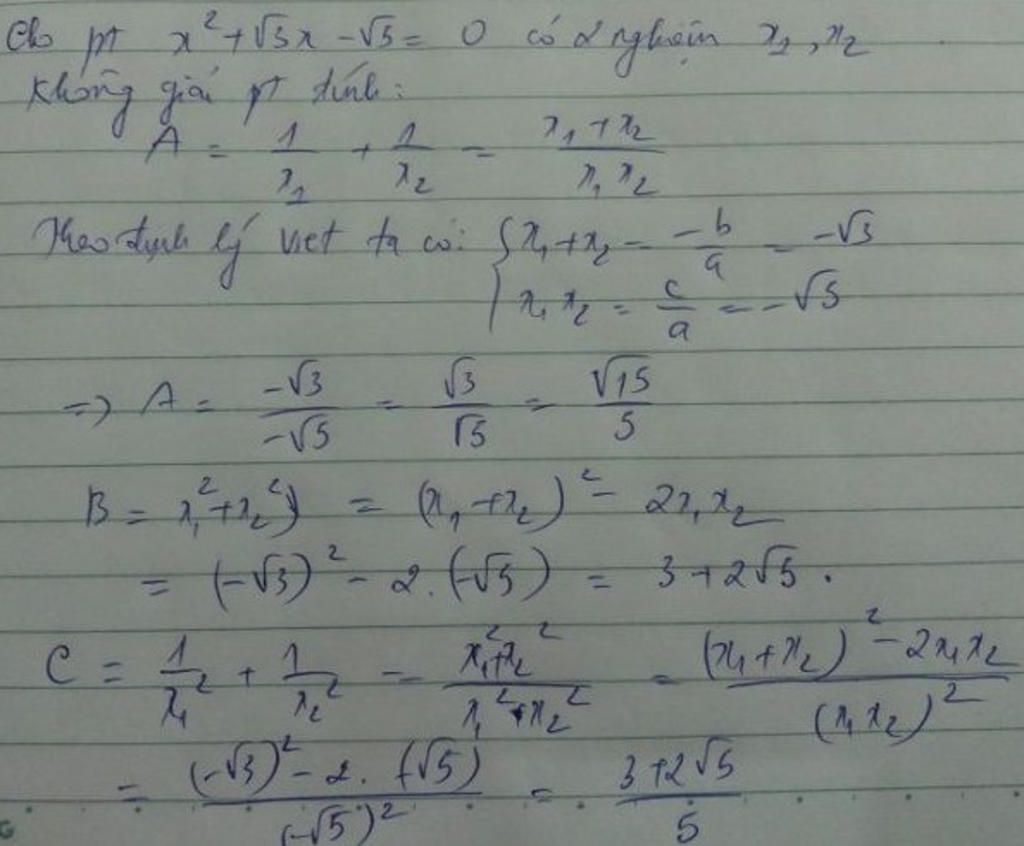 Cho pt x² + √3x - √5 = 0 có 2 nghiệm x₁, x₂
Không giải pt tính:
A = 1/x₁ + 1/x₂ = (x₁ + x₂)/(x₁ x₂)
Theo định lý viet ta có: { x₁ + x₂ = -b/a = -√3
x₁ x₂ = c/a = -√5
=> A = -√3/-√5 = √3/√5 = √15/5
B = x₁² + x₂²) = (x₁ + x₂)² - 2x₁x₂
= (-√3)² - 2.(-√5) = 3 + 2√5.
C = 1/x₁² + 1/x₂² = (x₁² + x₂²)/(x₁² + x₂²) = ((x₁ + x₂)² - 2x₁x₂)/(x₁ x₂)²
= ((-√3)² - 2.(-√5))/(-√5)² = (3 + 2√5)/5